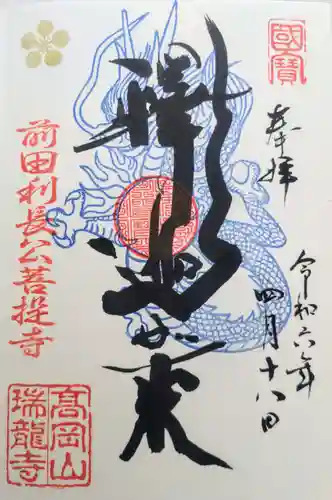 國寳
奉拝
令和六年
四月十八日
釋迦如来
前田利長公菩提寺
高岡山
瑞龍寺